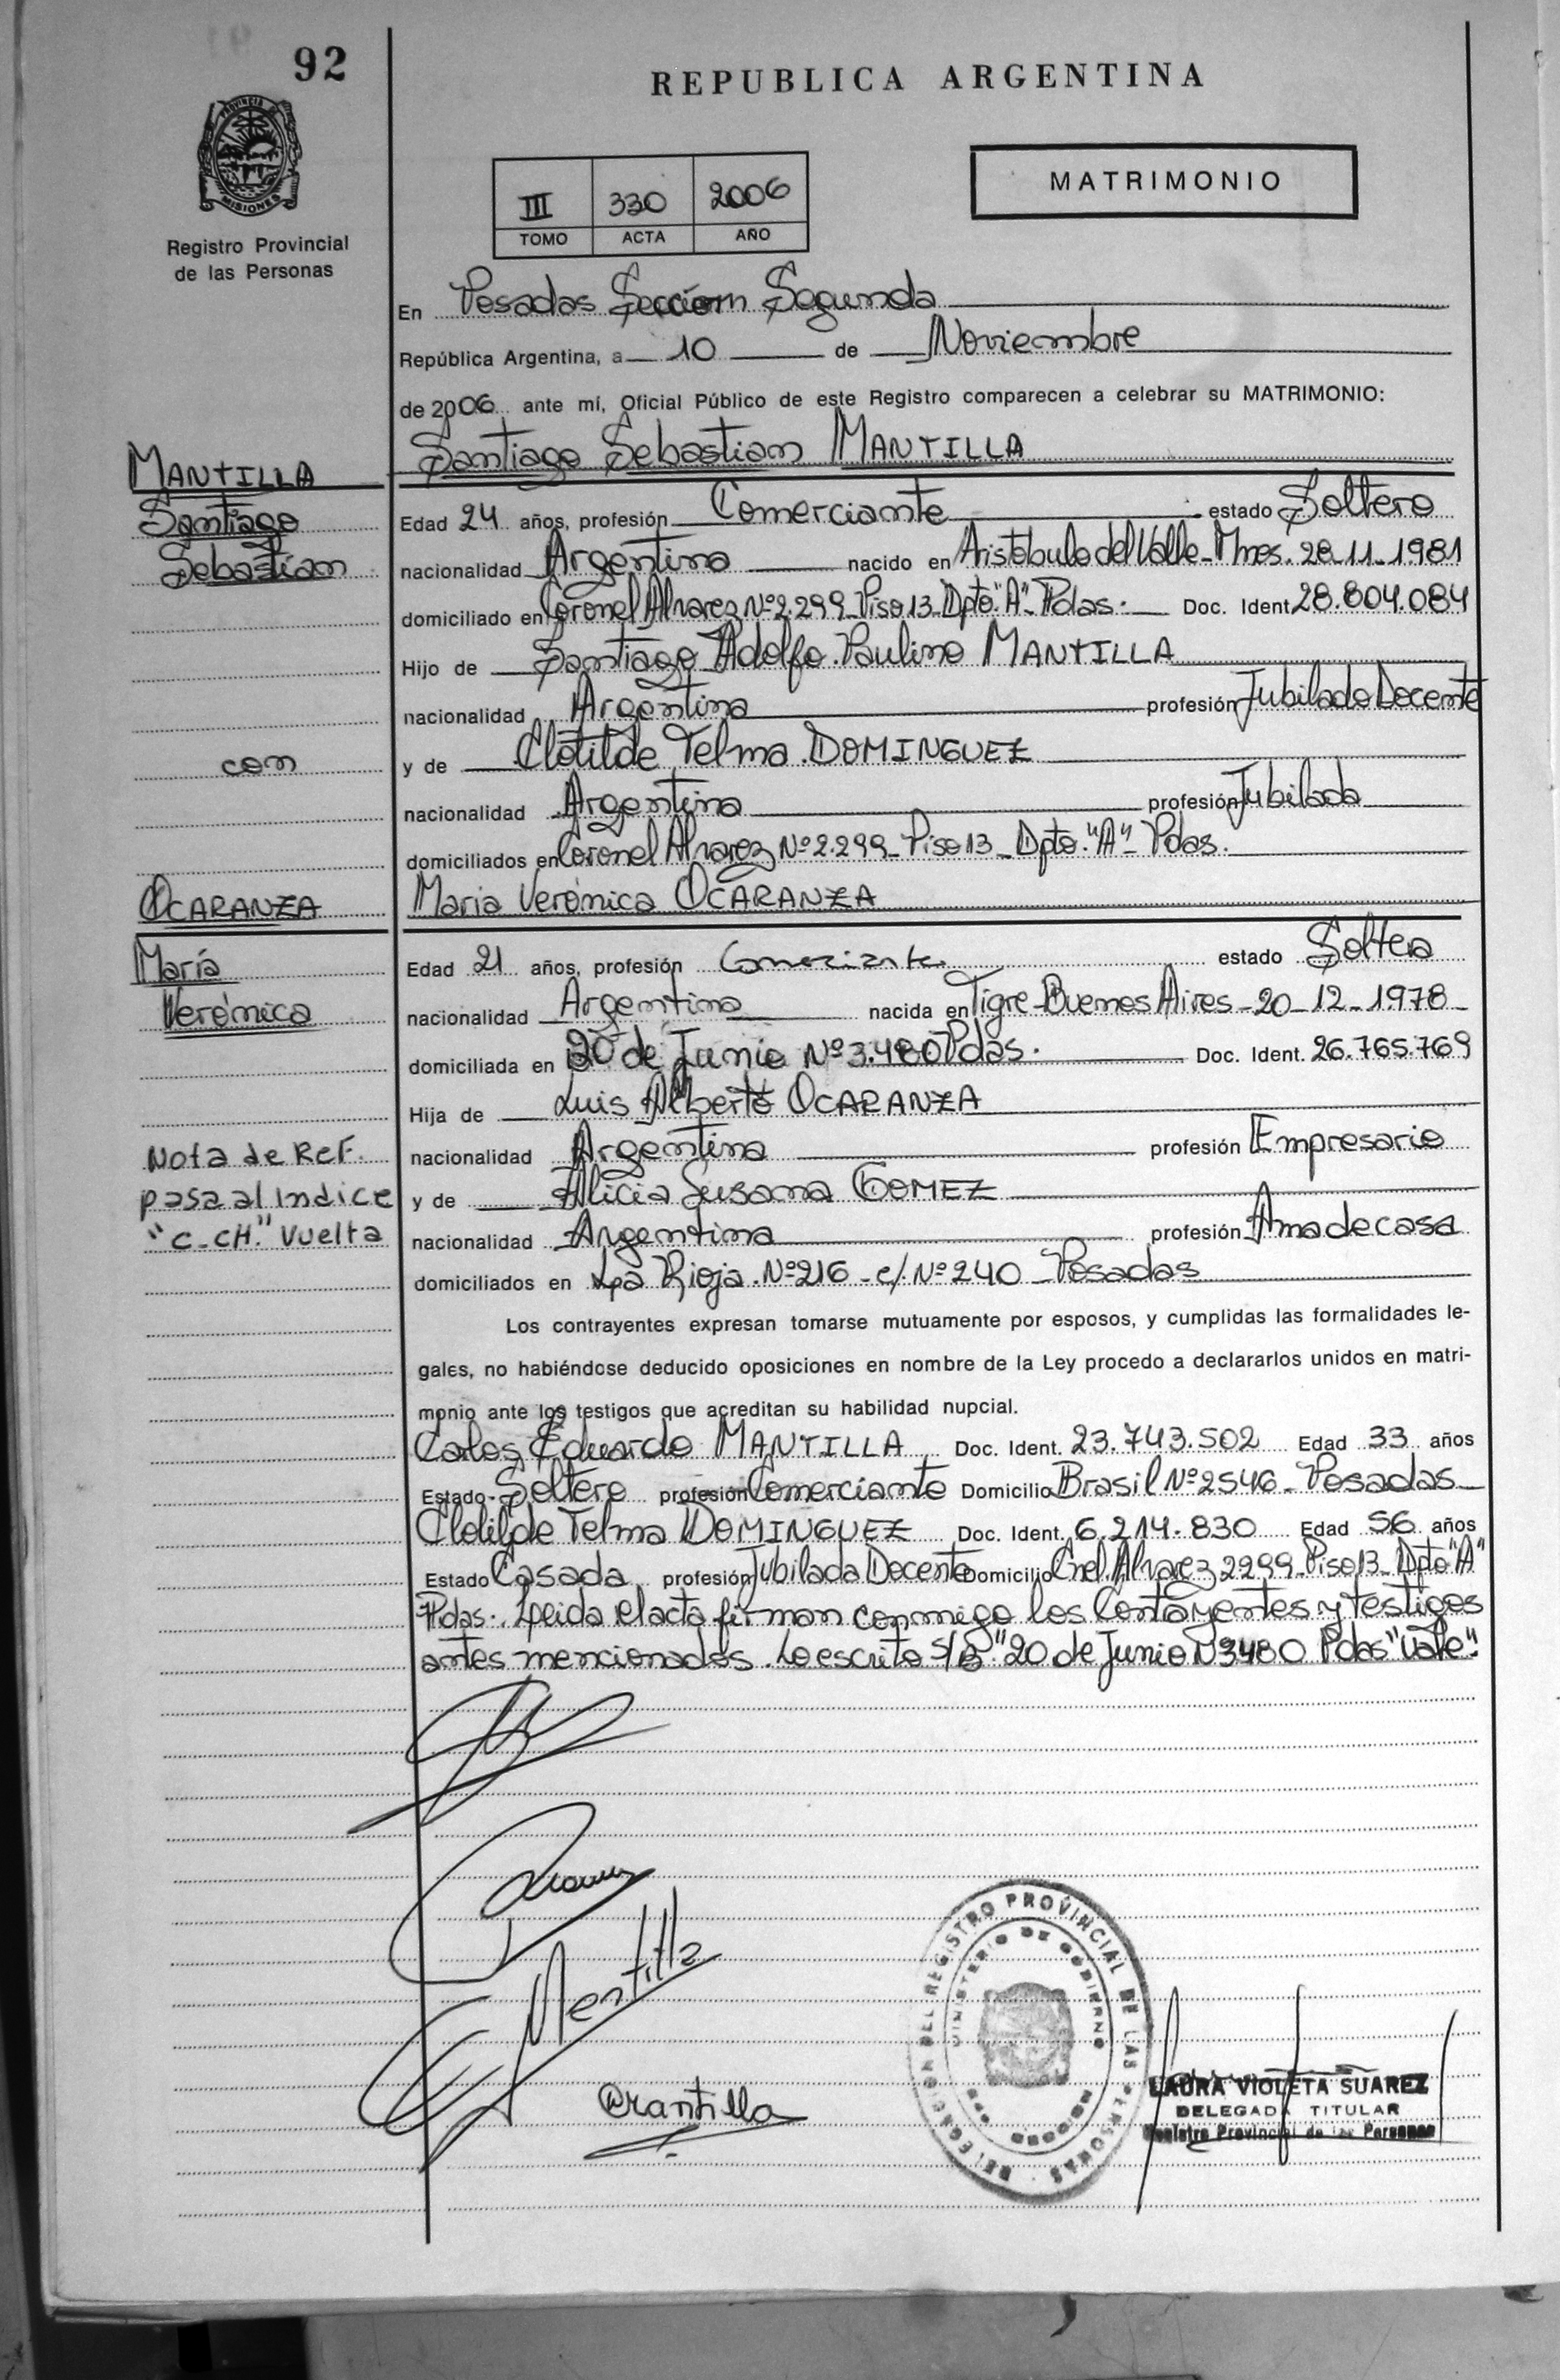 92
REPUBLICA ARGENTINA
PROVINCIA DE
MISIONES
Registro Provincial
de las Personas
III 330 2006
TOMO ACTA AÑO
MATRIMONIO
En Posadas Sección Segunda
República Argentina, a 10 de Noviembre
de 2006 ante mí, Oficial Público de este Registro comparecen a celebrar su MATRIMONIO:
Santiago Sebastian MANTILLA
MANTILLA
Santiago
Sebastían
Edad 24 años, profesión Comerciante estado Soltero
nacionalidad Argentina nacido en Aristóbulo del Valle - Mnes. 28-11-1981
domiciliado en Coronel Alvarez Nº 2.299 Piso 13 Dpto "A" Pdas. Doc. Ident. 28.804.084
Hijo de Santiago Adolfo Paulino MANTILLA
nacionalidad Argentina profesión Jubilado Docente
con
y de Clotilde Telma DOMINGUEZ
nacionalidad Argentina profesión Jubilada
domiciliados en Coronel Alvarez Nº 2.299 - Piso 13 - Dpto. "A" - Pdas.
OCARANZA
María
Verónica
Maria Verónica OCARANZA
Edad 21 años, profesión Comerciante estado Soltera
nacionalidad Argentina nacida en Tigre - Buenos Aires - 20-12-1978
domiciliada en 20 de Junio Nº 3.480 Pdas. Doc. Ident. 26.765.769
Hija de Luis Alberto OCARANZA
nacionalidad Argentina profesión Empresario
y de Alicia Susana GOMEZ
nacionalidad Argentina profesión Ama de casa
domiciliados en La Rioja Nº 216 - c/ Nº 240 - Posadas
Nota de Ref.
pasa al Indice
"C-CH." Vuelta
Los contrayentes expresan tomarse mutuamente por esposos, y cumplidas las formalidades le-
gales, no habiéndose deducido oposiciones en nombre de la Ley procedo a declararlos unidos en matri-
monio ante los testigos que acreditan su habilidad nupcial.
Carlos Eduardo MANTILLA Doc. Ident. 23.743.502 Edad 33 años
Estado Soltero profesión Comerciante Domicilio Brasil Nº 2546 - Posadas
Clotilde Telma DOMINGUEZ Doc. Ident. 6.214.830 Edad 56 años
Estado Casada profesión Jubilada Docente Domicilio Cnel. Alvarez 2299 - Piso 13 - Dpto "A"
Pdas. Leida el acta firman conmigo los Contayentes y testigos
antes mencionados. Lo escrito S/B "20 de Junio Nº 3480 Pdas" Vale".
Mantilla
Mantilla
DELEGACION DEL REGISTRO PROVINCIAL DE LAS PERSONAS
MINISTERIO DE GOBIERNO
LAURA VIOLETA SUAREZ
DELEGADA TITULAR
Registro Provincial de las Personas